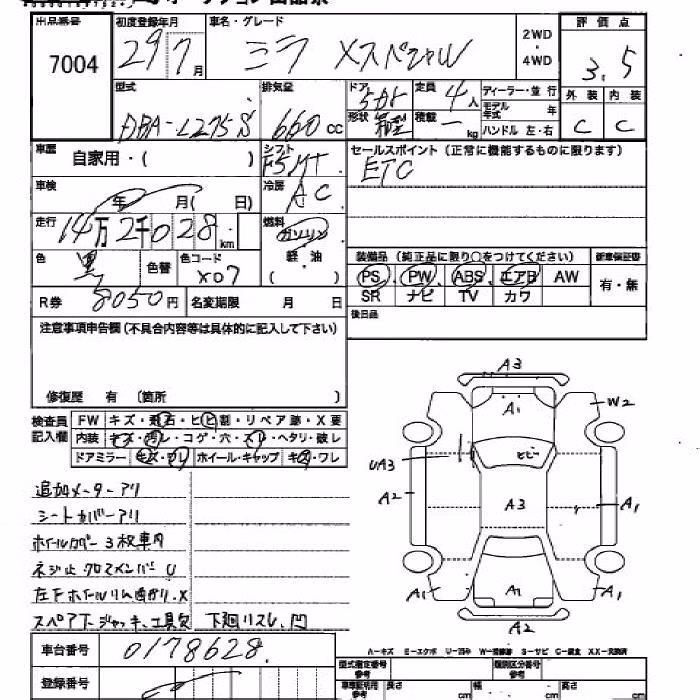 出品番号 7004
初度登録年月 29 7月
車名・グレード ミラ Xスペシャル
2WD・4WD
評価点 3.5
外装 C 内装 C
型式 DBA-L275S
排気量 660cc
ドア 5Dr
形状 箱型
定員 4人
積載 - kg
ディーラー・並行
モデル年式 年
ハンドル 左・右
車歴 自家用・( )
シフト F5 MT
冷房 AC
セールスポイント (正常に機能するものに限ります)
ETC
車検 年 月( 日)
走行 14万2千028km
燃料 ガソリン
軽・油
( )
色 黒 色替
色コード X07
装備品 (純正品に限り○をつけてください) 新車保証書
PS PW ABS エアB AW 有・無
SR ナビ TV カワ
R券 8050円 名変期限 月 日
後日品
注意事項申告欄 (不具合内容等は具体的に記入して下さい)
修復歴 有 (箇所 )
検査員記入欄
FW キズ・飛石・ヒビ割・リペア跡・X要
内装 キズ・汚レ・コゲ・穴・スレ・ヘタリ・破レ
ドアミラー キズ・ワレ ホイール・キャップ キズ・ワレ
追加メーターアリ
シートカバーアリ
ホイルカバー3枚車内
ネジ止 クロスメンバーU
左Fホイルリム曲がり.X
スペア下 ジャッキ、工具欠 下廻リスレ、凹
A3
A1
W2
UA3
ヒビ
A2
A3
A1
A1
A1
A1
A2
車台番号 0178628
A-キズ E-エクボ U-凹み W-補修跡 S-サビ C-腐食 XX-交換済
登録番号
型式指定番号 参考
類別区分番号 参考
車車証明用 参考 長さ cm 幅 cm 高さ cm